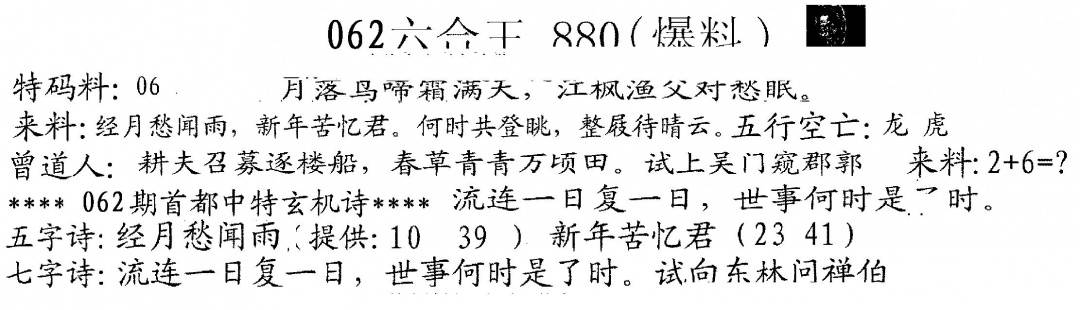 062六合王 880(爆料)
特码料: 06 月落鸟啼霜满天, 江枫渔父对愁眠。
来料: 经月愁闻雨, 新年苦忆君。何时共登眺, 整屐待晴云。五行空亡: 龙 虎
曾道人: 耕夫召募逐楼船, 春草青青万顷田。试上吴门窥郡郭 来料: 2+6=?
**** 062期首都中特玄机诗**** 流连一日复一日, 世事何时是了时。
五字诗: 经月愁闻雨(提供: 10 39 ) 新年苦忆君 (23 41)
七字诗: 流连一日复一日, 世事何时是了时。试向东林问禅伯